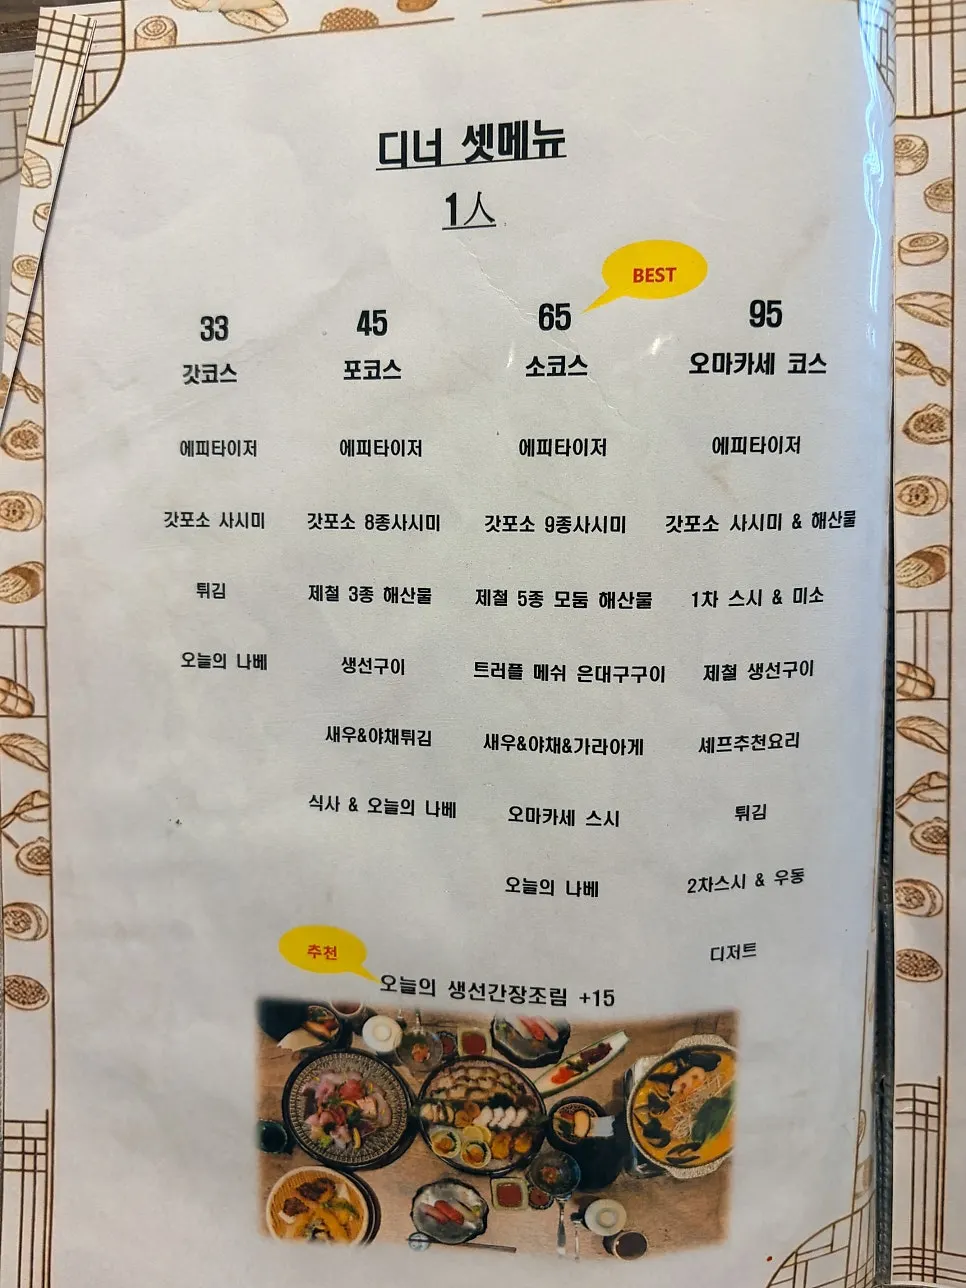 디너 셋메뉴
1人
BEST
33 45 65 95
갓코스 포코스 소코스 오마카세 코스
에피타이저 에피타이저 에피타이저 에피타이저
갓포소 사시미 갓포소 8종사시미 갓포소 9종사시미 갓포소 사시미 & 해산물
튀김 제철 3종 해산물 제철 5종 모둠 해산물 1차 스시 & 미소
오늘의 나베 생선구이 트러플 메쉬 은대구구이 제철 생선구이
새우&야채튀김 새우&야채&가라아게 셰프추천요리
식사 & 오늘의 나베 오마카세 스시 튀김
오늘의 나베 2차스시 & 우동
디저트
추천
오늘의 생선간장조림 +15